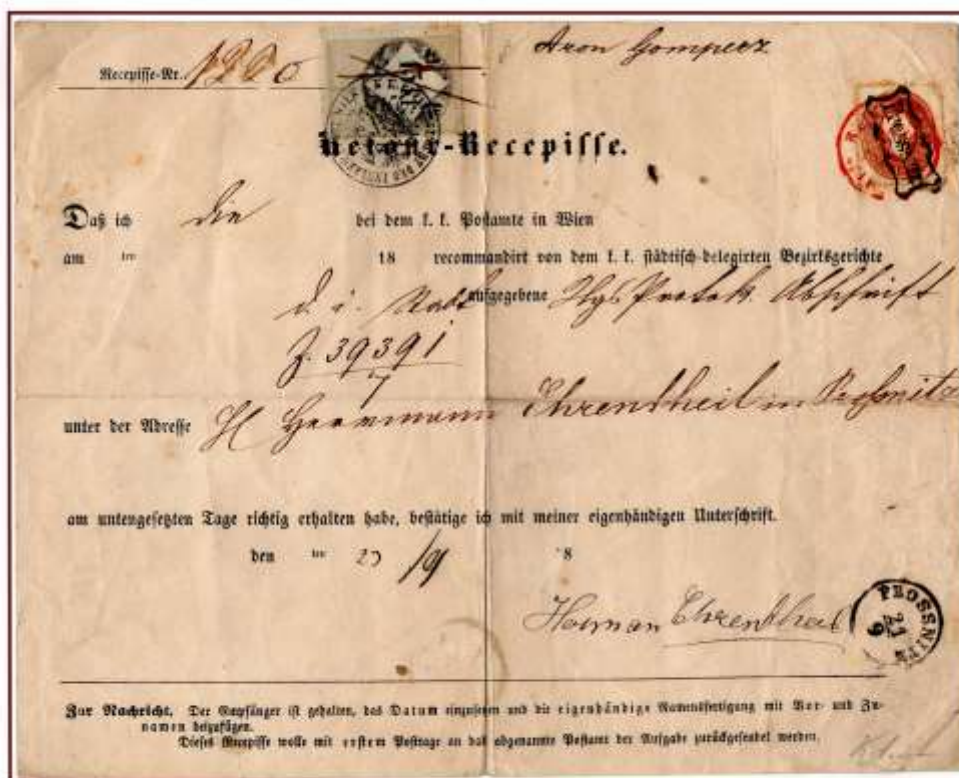 Aron Gomperz
Recepisse-Nr.
Retour-Recepisse.
Daß ich die bei dem k. k. Postamte in Wien
am ten 18 recommandirt von dem k. k. städtisch-delegirten Bezirksgerichte
d. i. Stadt aufgegebene Protok. Abschrift
Z. 39391
unter der Adresse H Herrmann Ehrentheil in Proßnitz
am untengesetzten Tage richtig erhalten habe, bestätige ich mit meiner eigenhändigen Unterschrift.
den ten /9 18
Herman Ehrentheil
PROSSNITZ
21
9
Zur Nachricht. Der Empfänger ist gehalten, das Datum einzusetzen und die eigenhändige Namensfertigung mit Vor- und Zu-
namen beizufügen.
Dieses Recepisse wolle mit erstem Posttage an das abgenannte Postamt der Aufgabe zurückgesendet werden.